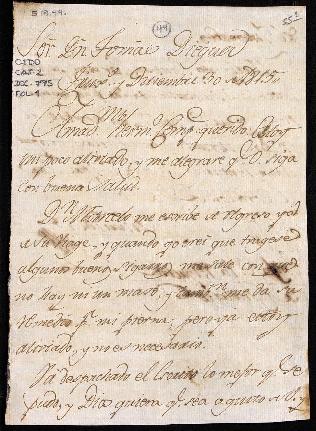 S 18.99.
44
55
CIDO
CAT. 2
DOC. 795
FOL. 1
Sor Dn Tomas
y Diciembre 30 de 1815
Amado Hermo y querido
un poco aliviado, y me alegrare q. V. siga
con buena salud.
Dn Marcelo me escribe de regreso ya
de su viage, y quando yo crei que tragese
algunos buenos me sale con que
no hay ni un maso, y me da su
remedio pa mi pierna; pero ya estoy
aliviado, y no es necesario.
Va despachado el lo mejor q. se
pudo, y Dios quiera q. sea a gusto de V. y